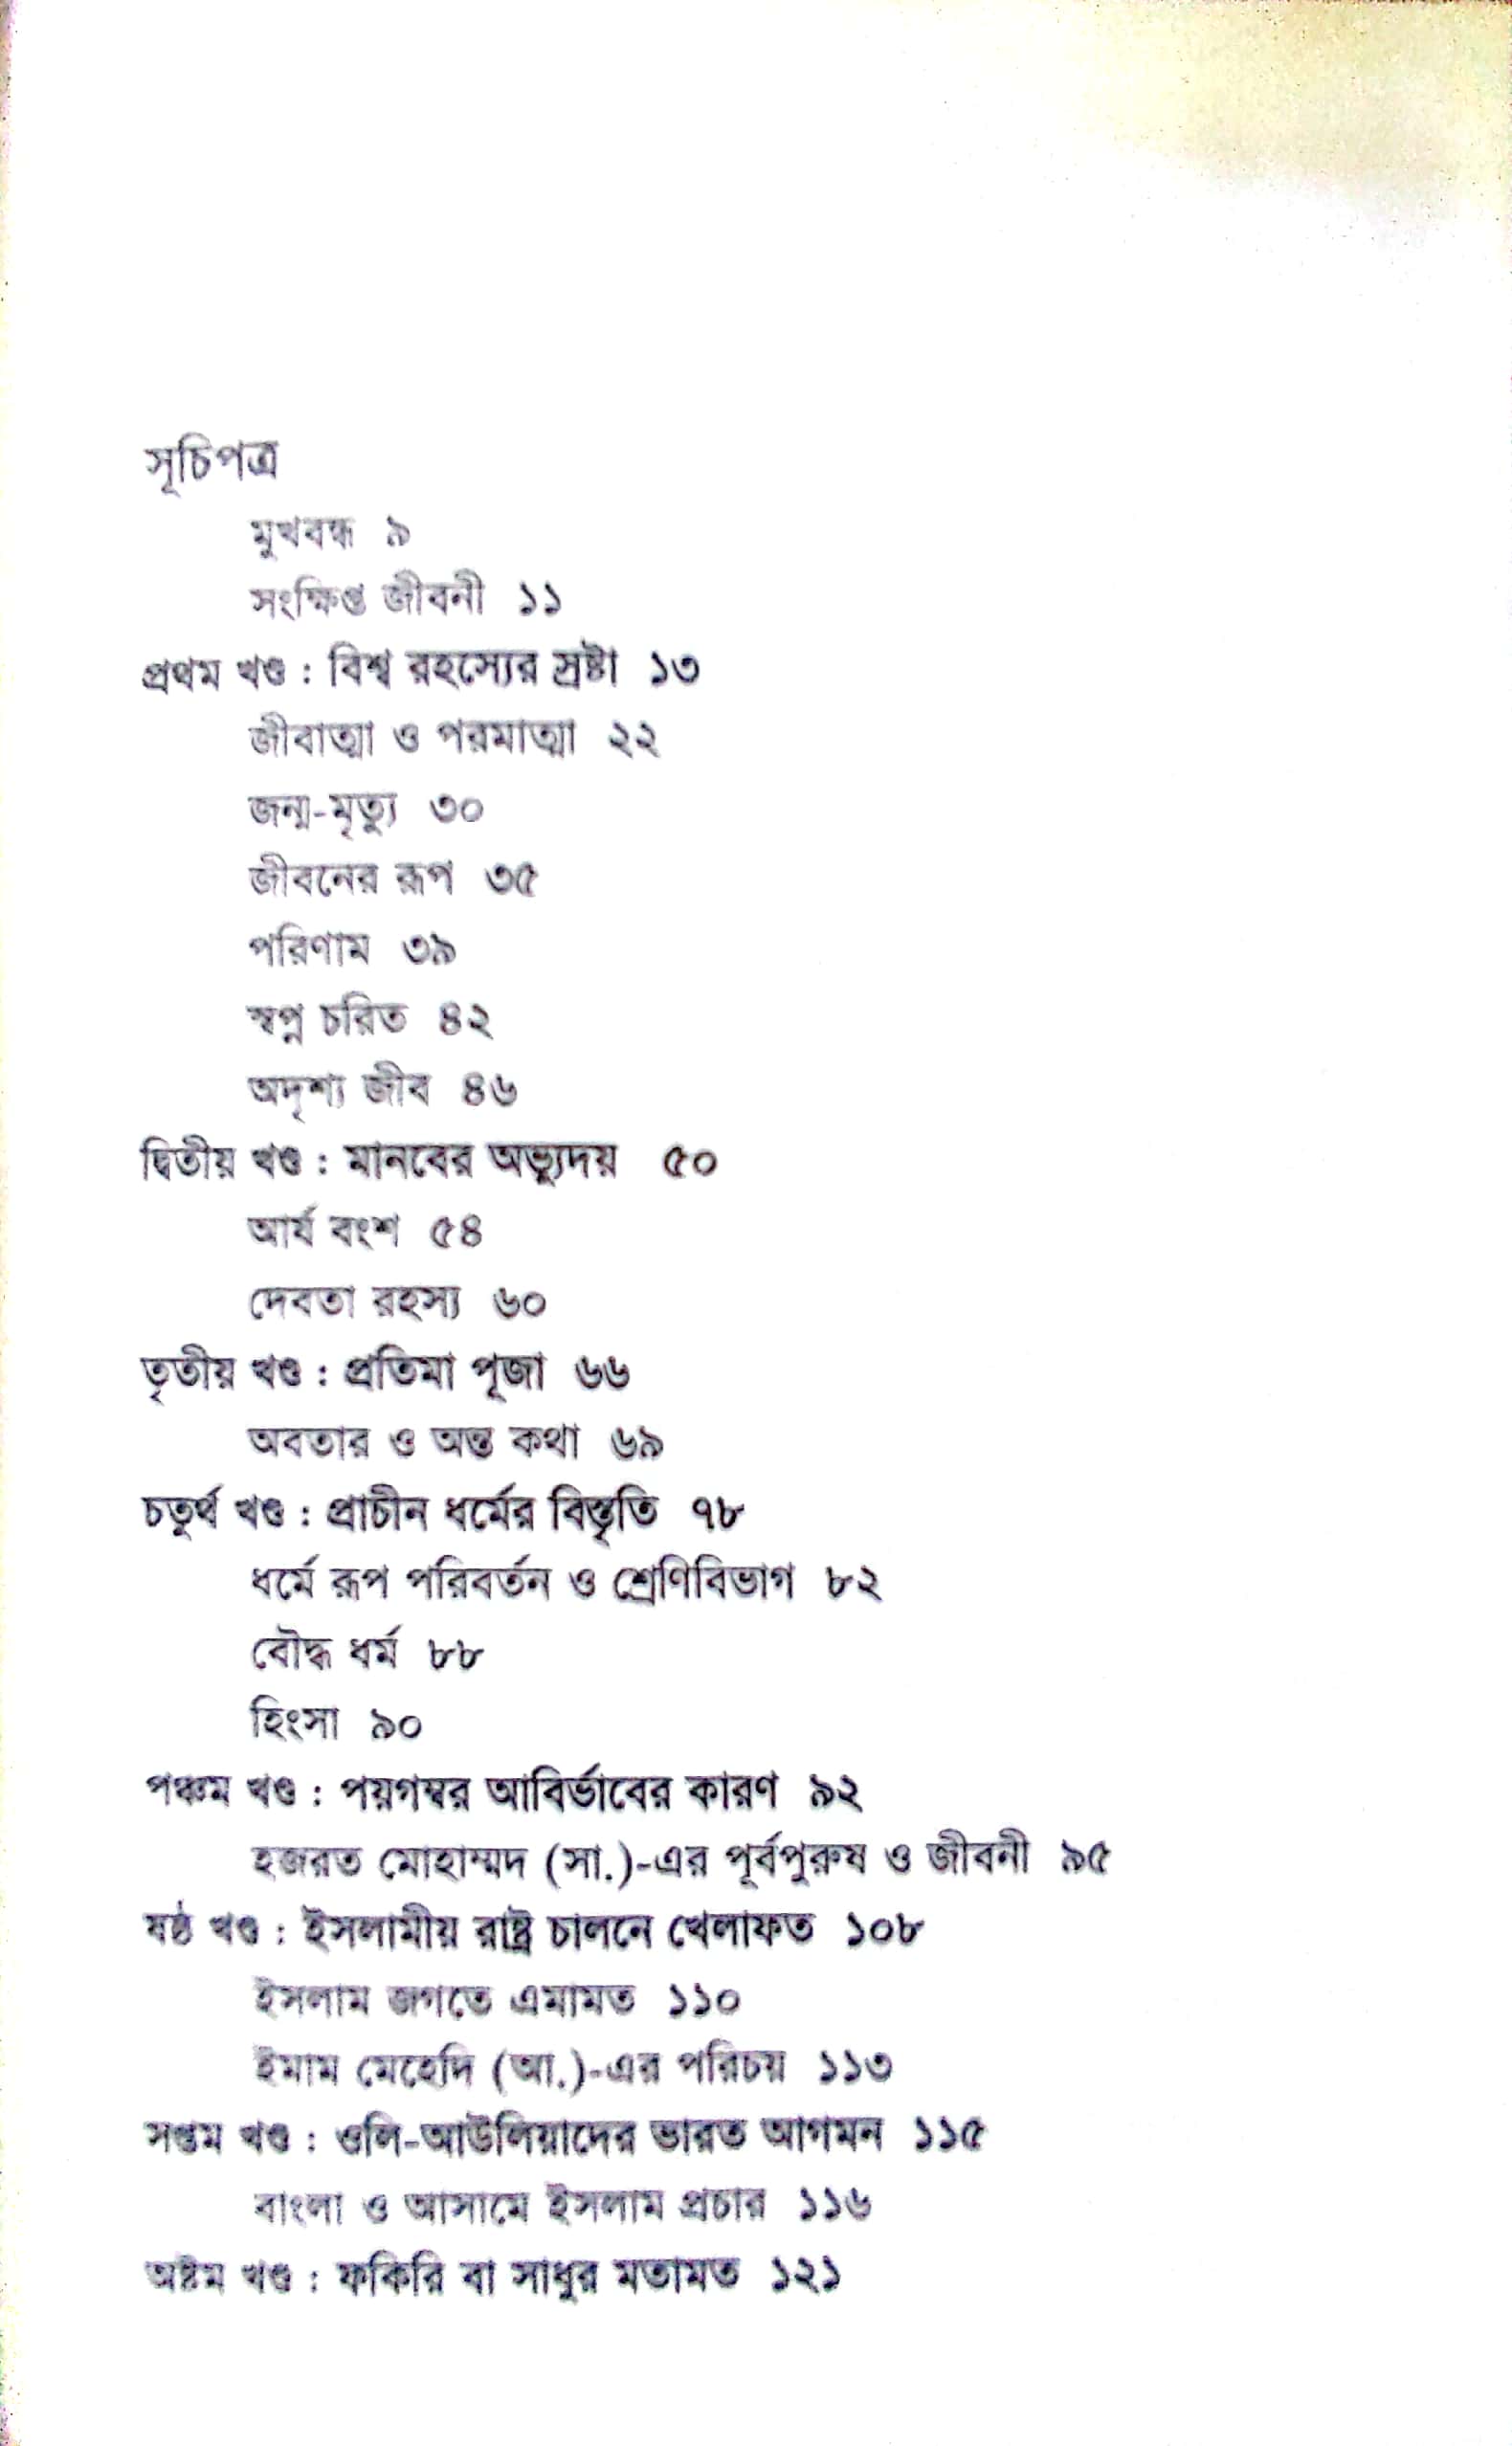 সূচিপত্র
মুখবন্ধ ৯
সংক্ষিপ্ত জীবনী ১১
প্রথম খণ্ড : বিশ্ব রহস্যের স্রষ্টা ১৩
জীবাত্মা ও পরমাত্মা ২২
জন্ম-মৃত্যু ৩০
জীবনের রূপ ৩৫
পরিণাম ৩৯
স্বপ্ন চরিত ৪২
অদৃশ্য জীব ৪৬
দ্বিতীয় খণ্ড : মানবের অভ্যুদয় ৫০
আর্য বংশ ৫৪
দেবতা রহস্য ৬০
তৃতীয় খণ্ড : প্রতিমা পূজা ৬৬
অবতার ও অন্ত কথা ৬৯
চতুর্থ খণ্ড : প্রাচীন ধর্মের বিস্তৃতি ৭৮
ধর্মে রূপ পরিবর্তন ও শ্রেণিবিভাগ ৮২
বৌদ্ধ ধর্ম ৮৮
হিংসা ৯০
পঞ্চম খণ্ড : পয়গম্বর আবির্ভাবের কারণ ৯২
হজরত মোহাম্মদ (সা.)-এর পূর্বপুরুষ ও জীবনী ৯৫
ষষ্ঠ খণ্ড : ইসলামীয় রাষ্ট্র চালনে খেলাফত ১০৮
ইসলাম জগতে এমামত ১১০
ইমাম মেহেদি (আ.)-এর পরিচয় ১১৩
সপ্তম খণ্ড : ওলি-আউলিয়াদের ভারত আগমন ১১৫
বাংলা ও আসামে ইসলাম প্রচার ১১৬
অষ্টম খণ্ড : ফকিরি বা সাধুর মতামত ১২১